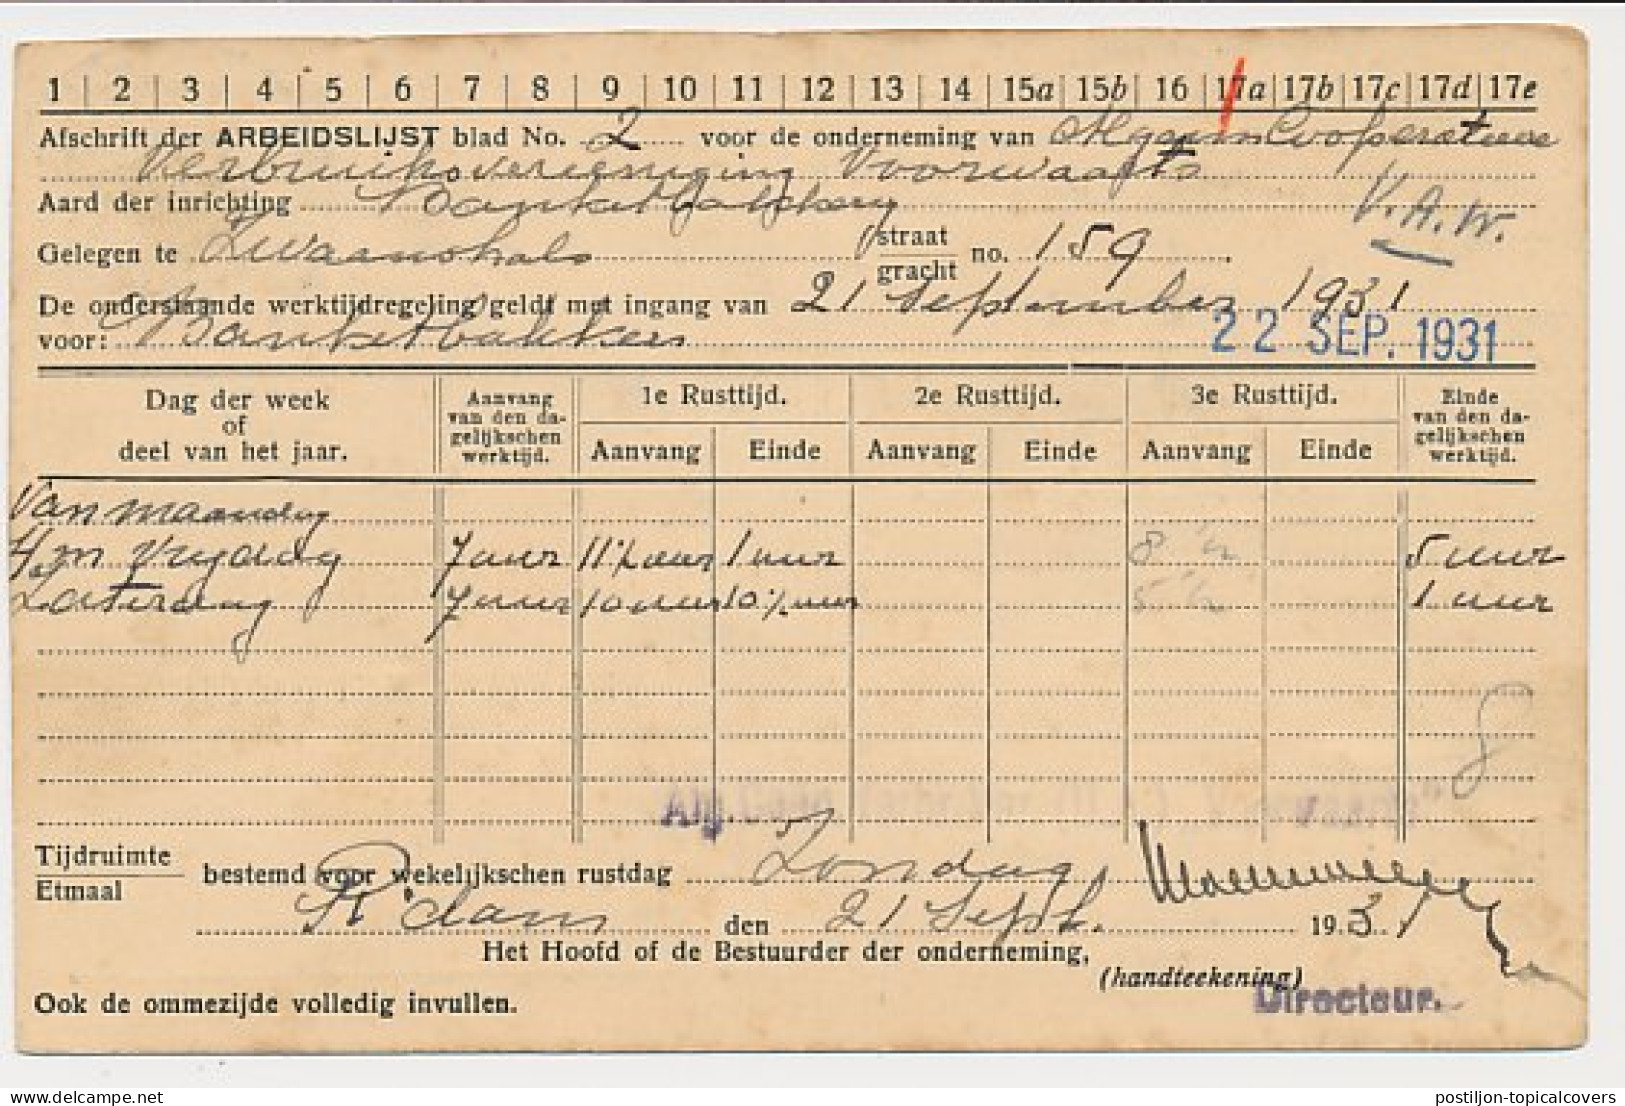 1 | 2 | 3 | 4 | 5 | 6 | 7 | 8 | 9 | 10 | 11 | 12 | 13 | 14 | 15a | 15b | 16 | 17a | 17b | 17c | 17d | 17e
Afschrift der ARBEIDSLIJST blad No. 2 voor de onderneming van Algem Cooperatieve
Verbruiksvereeniging Voorwaarts
Aard der inrichting Banketbakkery
V.A.W.
Gelegen te Zwaanshals straat gracht no. 159.
De onderstaande werktijdregeling geldt met ingang van 21 September 1931
voor: Banketbakkers
22 SEP. 1931
Dag der week of deel van het jaar. Aanvang van den dagelijkschen werktijd. 1e Rusttijd. 2e Rusttijd. 3e Rusttijd. Einde van den dagelijkschen werktijd.
Aanvang Einde Aanvang Einde Aanvang Einde
Van maandag
t/m Vrydag 7 uur 11½ uur 1 uur 8 ½ 5 uur
Zaterdag 7 uur 10 uur 10½ uur 5 ½ 1 uur
8
Alg. Coöp. Verbr. Ver. (U.A.) "Voorwaarts"
Tijdruimte
Etmaal bestemd voor wekelijkschen rustdag Zondag
R'dam den 21 Sept. 1931
Het Hoofd of de Bestuurder der onderneming,
(handteekening)
Directeur.
Ook de ommezijde volledig invullen.
www.delcampe.net
postiljon-topicalcovers